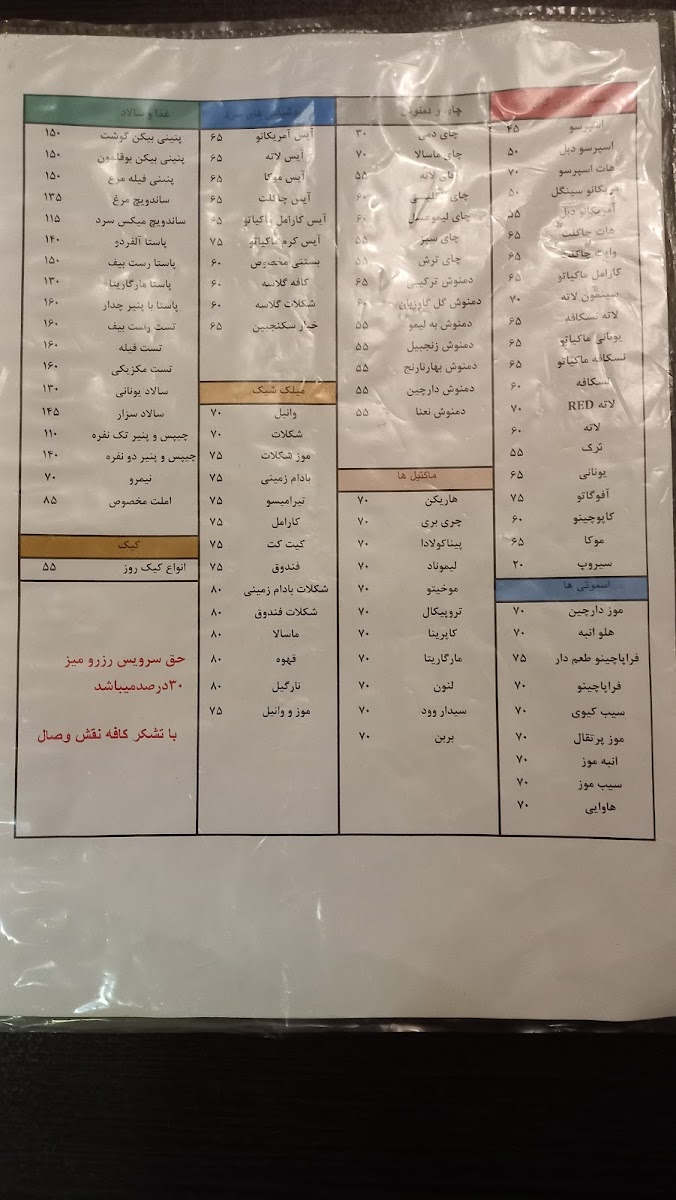 اسپرسو ۴۵
اسپرسو دبل ۵۰
هات اسپرسو ۷۰
آمریکانو سینگل ۵۰
آمریکانو دبل ۵۵
هات چاکلت ۶۵
وایت چاکلت ۶۵
کارامل ماکیاتو ۶۵
سینمون لاته ۷۰
لاته نسکافه ۶۵
یونانی ماکیاتو ۶۵
نسکافه ماکیاتو ۶۵
نسکافه ۶۰
لاته RED ۷۰
لاته ۶۰
ترک ۵۵
یونانی ۶۵
آفوگاتو ۷۵
کاپوچینو ۶۰
موکا ۶۵
سیروپ ۲۰
اسموتی ها
موز دارچین ۷۰
هلو انبه ۷۰
فراپاچینو طعم دار ۷۵
فراپاچینو ۷۰
سیب کیوی ۷۰
موز پرتقال ۷۰
انبه موز ۷۰
سیب موز ۷۰
هاوایی ۷۰
چای و دمنوش
چای دمی ۳۰
چای ماسالا ۷۰
چای لاته ۵۵
چای انگلیسی ۶۰
چای لیموعسل ۶۰
چای سبز ۵۵
چای ترش ۵۵
دمنوش ترکیبی ۶۵
دمنوش گل گاوزبان ۶۰
دمنوش به لیمو ۵۵
دمنوش زنجبیل ۵۵
دمنوش بهارنارنج ۵۵
دمنوش دارچین ۵۵
دمنوش نعنا ۵۵
ماکتیل ها
هاریکن ۷۰
چری بری ۷۰
پیناکولادا ۷۰
لیموناد ۷۰
موخیتو ۷۰
تروپیکال ۷۰
کاپرینا ۷۰
مارگاریتا ۷۰
لئون ۷۰
سیدار وود ۷۰
برین ۷۰
نوشیدنی های سرد
آیس آمریکانو ۶۵
آیس لاته ۶۵
آیس موکا ۶۵
آیس چاکلت ۶۵
آیس کارامل ماکیاتو ۶۵
آیس کرم ماکیاتو ۷۵
بستنی مخصوص ۶۰
کافه گلاسه ۶۰
شکلات گلاسه ۶۰
خیار سکنجبین ۶۵
میلک شیک
وانیل ۷۰
شکلات ۷۰
موز شکلات ۷۵
بادام زمینی ۷۵
تیرامیسو ۷۵
کارامل ۷۵
کیت کت ۷۵
فندوق ۷۵
شکلات بادام زمینی ۸۰
شکلات فندوق ۸۰
ماسالا ۸۰
قهوه ۸۰
نارگیل ۸۰
موز و وانیل ۷۵
غذا و سالاد
پنینی بیکن گوشت ۱۵۰
پنینی بیکن بوقلمون ۱۵۰
پنینی فیله مرغ ۱۵۰
ساندویچ مرغ ۱۳۵
ساندویچ میکس سرد ۱۱۵
پاستا آلفردو ۱۴۰
پاستا رست بیف ۱۵۰
پاستا مارگاریتا ۱۳۰
پاستا با پنیر چدار ۱۶۰
تست راست بیف ۱۶۰
تست فیله ۱۶۰
تست مکزیکی ۱۶۰
سالاد یونانی ۱۳۰
سالاد سزار ۱۴۵
چیپس و پنیر تک نفره ۱۱۰
چیپس و پنیر دو نفره ۱۴۰
نیمرو ۷۰
املت مخصوص ۸۵
کیک
انواع کیک روز ۵۵
حق سرویس رزرو میز
۳۰درصدمیباشد
با تشکر کافه نقش وصال